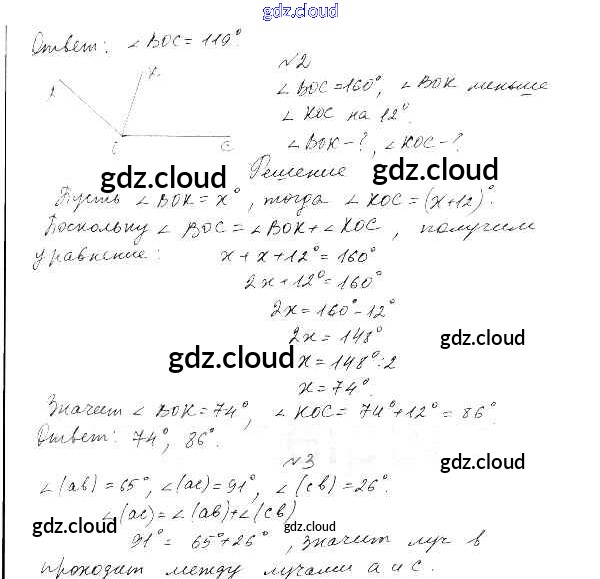 gdz.cloud
Ответ: ∠BOC = 119°.
N2
∠BOC = 160°, ∠BOK меньше
∠KOC на 12°.
∠BOK - ?, ∠KOC - ?
K
O
C
gdz.cloud
gdz.cloud
Решение
Пусть ∠BOK = x°, тогда ∠KOC = (x+12)°.
Поскольку ∠BOC = ∠BOK + ∠KOC, получим
уравнение: x + x + 12° = 160°
2x + 12° = 160°
2x = 160° - 12°
2x = 148°
gdz.cloud
gdz.cloud
x = 148° : 2
x = 74°.
Значит ∠BOK = 74°, ∠KOC = 74° + 12° = 86°
Ответ: 74°, 86°.
N3
gdz.cloud
∠(ab) = 65°, ∠(ac) = 91°, ∠(cb) = 26°
∠(ac) = ∠(ab) + ∠(cb)
gdz.cloud
gdz.cloud
91° = 65° + 26°, значит луч b
проходит между лучами a и c.